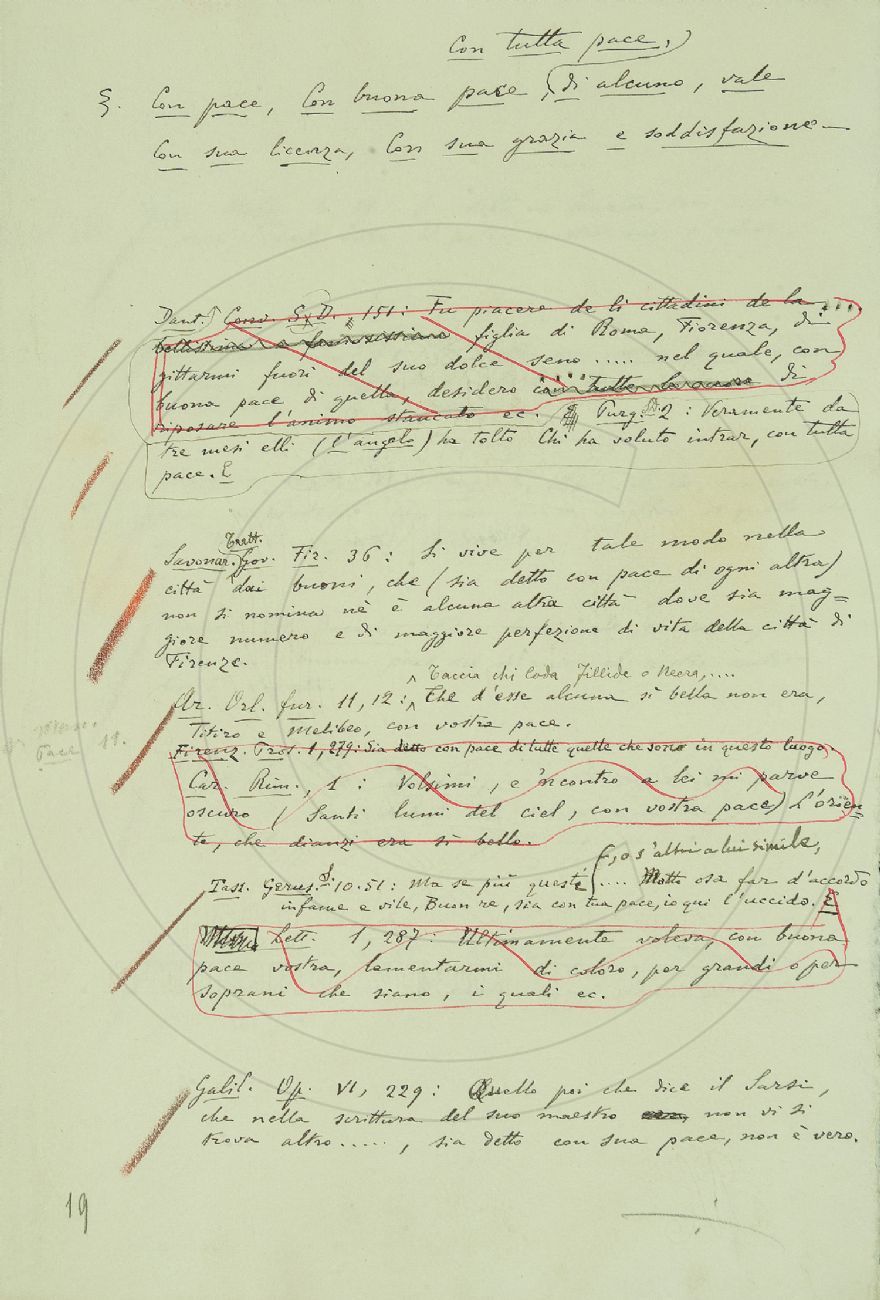 Con tutta pace,
§. Con pace, Con buona pace di alcuno, vale
Con sua licenza, Con sua grazia e soddisfazione.—
Dant. Conv. 151: Fu piacere de li cittadini de la ....
bellissima e famosissima figlia di Roma, Fiorenza, di
gittarmi fuori del suo dolce seno ..... nel quale, con
buona pace di quella, desidero con tutto lo core di
riposare l'animo stancato ec. Purg. 2: Veramente da
tre mesi elli (l'angelo) ha tolto Chi ha voluto intrar, con tutta
pace. E
Tratt.
Savonar. Gov. Fir. 36: Si vive per tale modo nella
città dai buoni, che (sia detto con pace di ogni altra)
non si nomina nè è alcuna altra città dove sia mag=
giore numero e di maggiore perfezione di vita della città di
Firenze.
Taccia chi loda Fillide o Neera, ....
Ar. Orl. fur. 11, 12: Che d'esse alcuna sì bella non era,
Titiro e Melibeo, con vostra pace.
Firenz. Pros. 1, 279: Sia detto con pace di tutte quelle che sono in questo luogo.
Car. Rim., 1: Volsimi, e 'ncontro a lei mi parve
oscuro (Santi lumi del ciel, con vostra pace) L'orïen-
te, che dianzi era sì bello.
, o s'altri a lui simile,
Tass. Gerus. 10. 51: Ma se più questi .... Motto osa far d'accordo
infame e vile, Buon re, sia con tua pace, io qui l'uccido. E
Lett. 1, 287: Ultimamente voleva, con buona
pace vostra, lamentarmi di coloro, per grandi o per
soprani che siano, i quali ec.
Galil. Op. VI, 229: Quello poi che dice il Sarsi,
che nella scrittura del suo maestro non vi si
trova altro ....., sia detto con sua pace, non è vero.
19